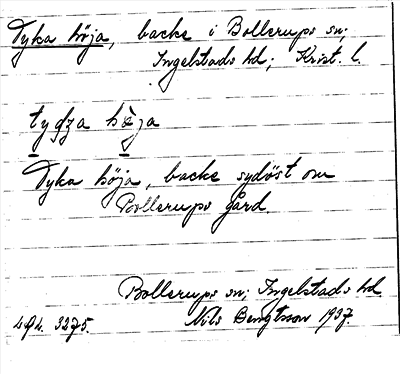 Tyka höja, backe i Bollerups sn;
Ingelstads hd; Krist. l.
tydza höja
Tyka höja, backe sydöst om
Bollerups gård.
Bollerups sn; Ingelstads hd.
Nils Bengtsson 1937.